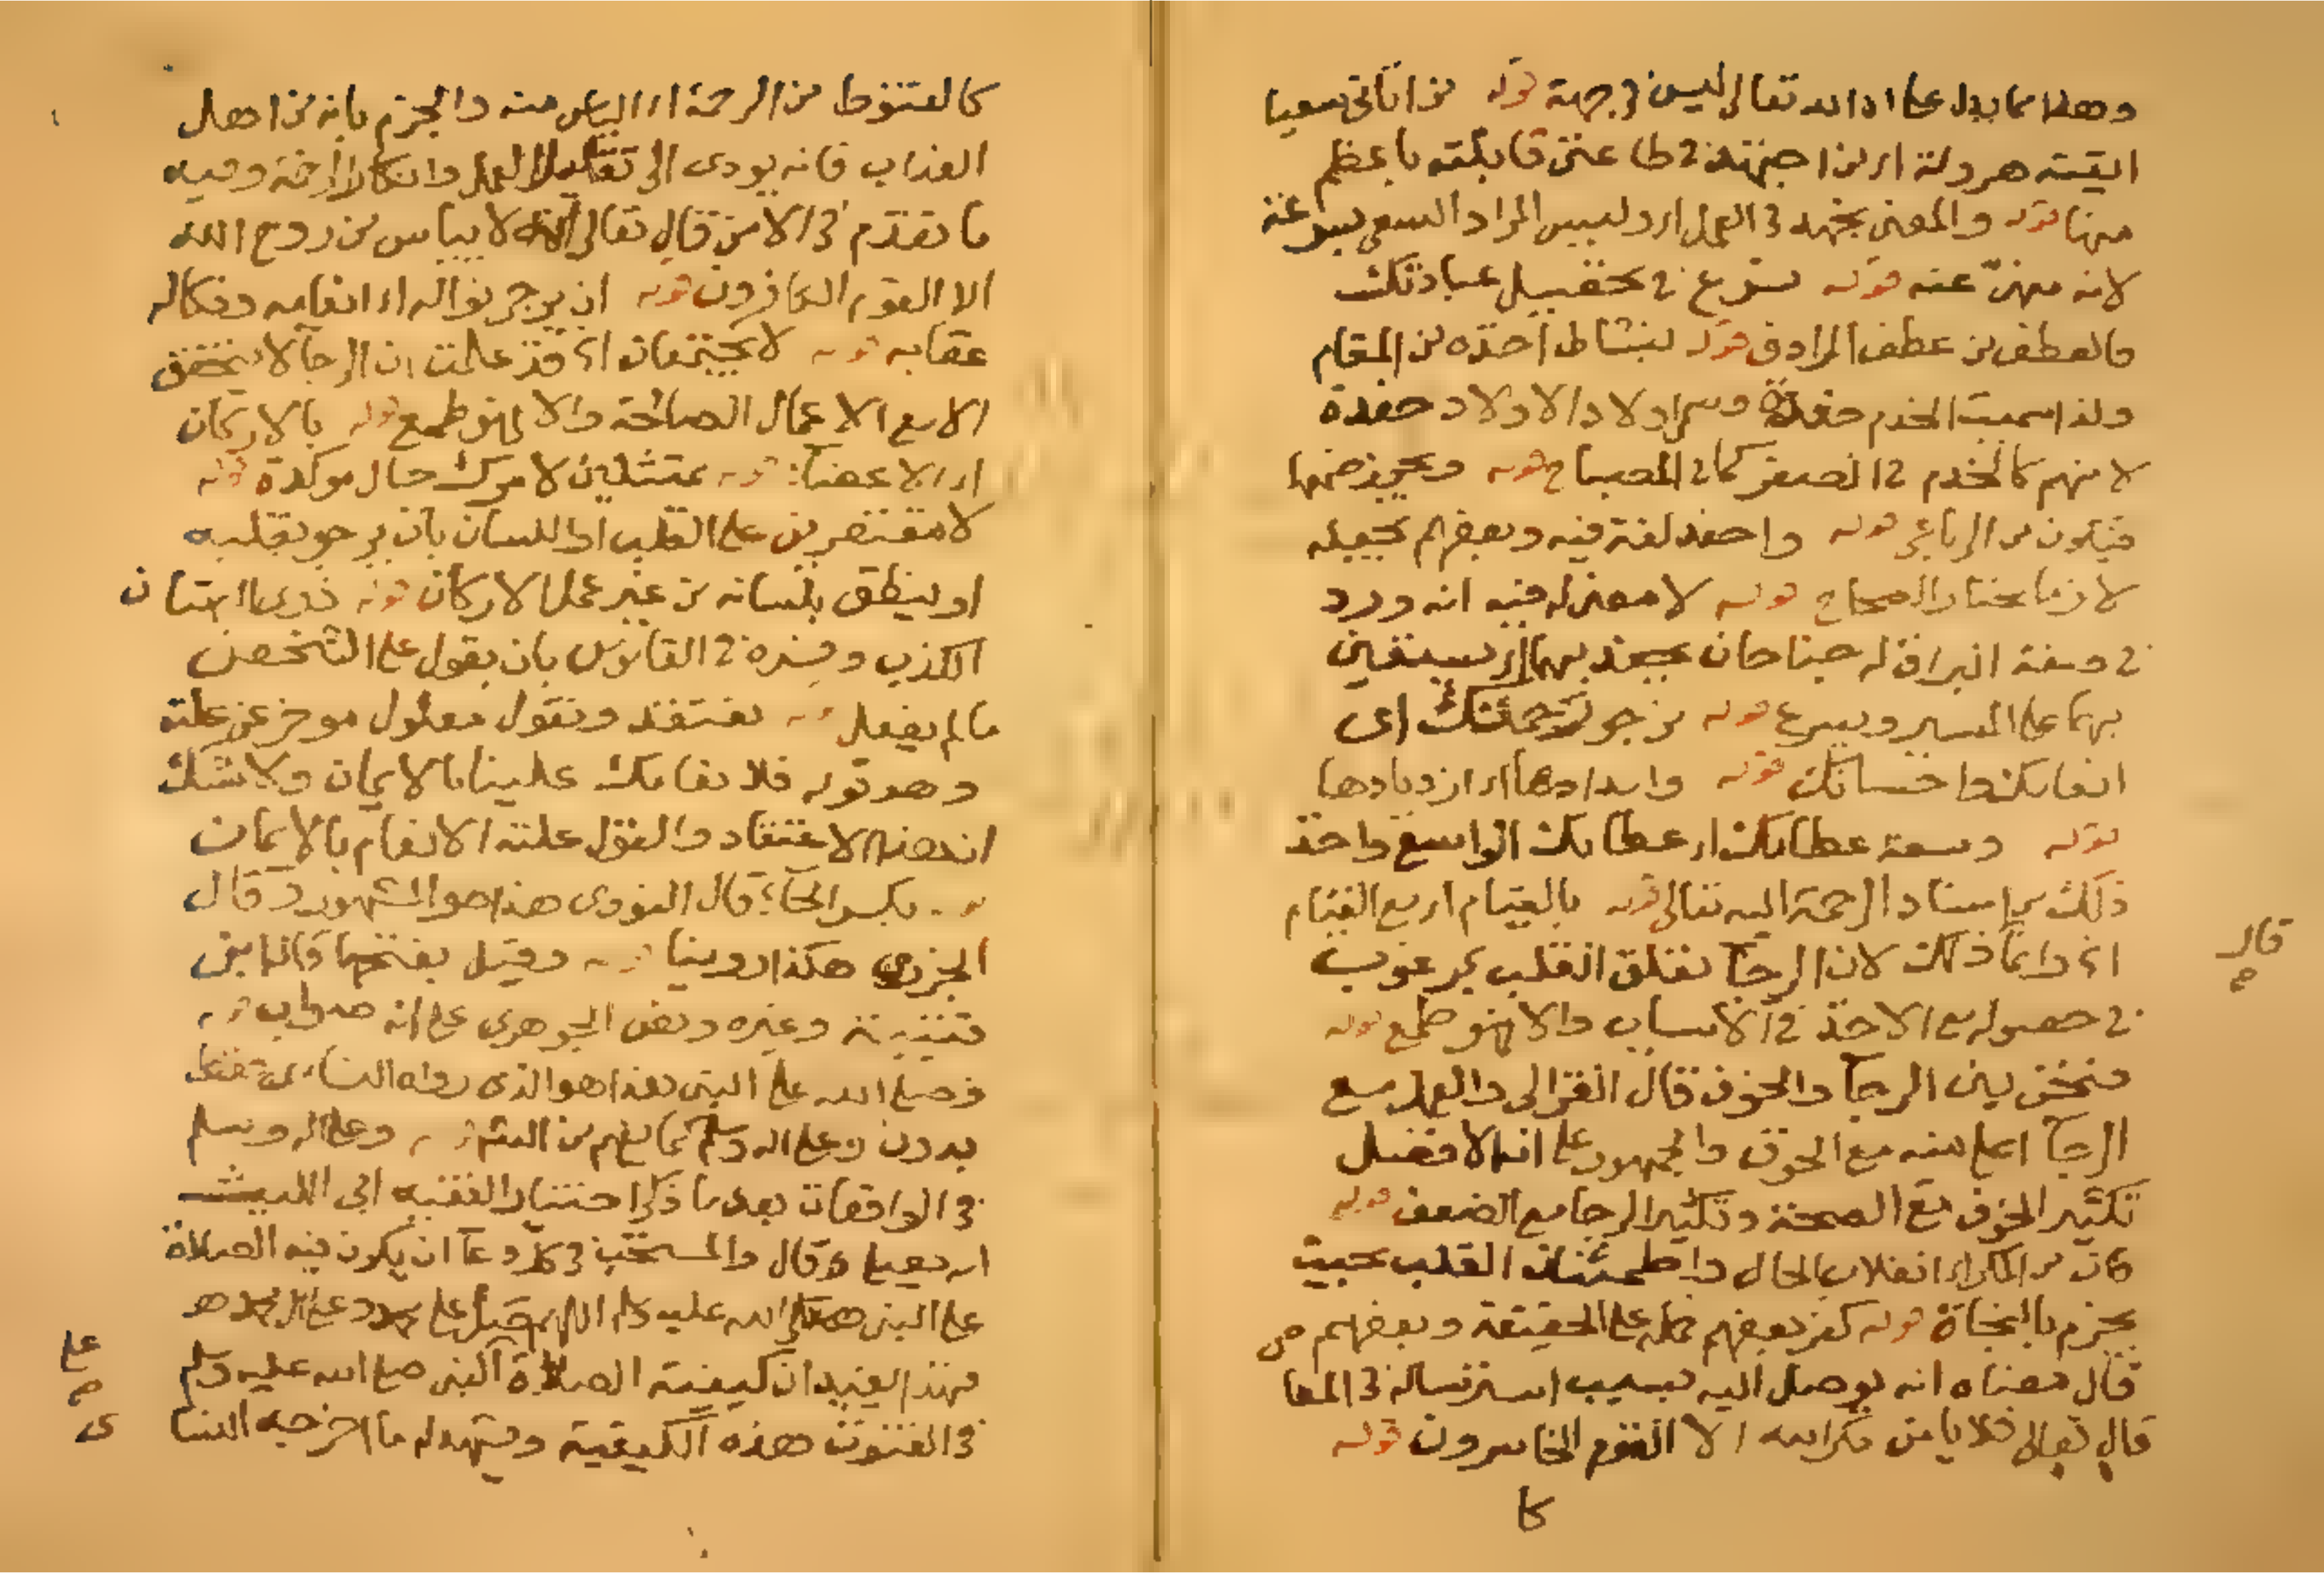 وهذا مما يدل على ان الله تعالى ليس في جهة قوله من اتاني سعيا
اتيته هرولة اي من اجتهد في طاعتي قابلته باعظم
منها قوله والمعنى نجهد في العمل اي وليس المراد السعي
لانه منهي عنه قوله نسرع في تحصيل عبادتك
فالعطف من عطف المرادف قوله بنشاط اخذه من المقام
ولذا سميت الخدم حفدة اولاد الاولاد حفدة
لانهم كالخدم في الصغر كما في المصباح قوله ويجوز ضمها
فيكون من الرباعي قوله واحفد لغة فيه وبعضهم يجعله
لازما مختار الصحاح قوله لا معنى له فيه انه ورد
في صفة البراق له جناحان يحفد بهما اي يستعين
بهما على المسير ويسرع قوله نرجو رحمتك اي
انعامك واحسانك قوله وامدادها اي ازديادها
قوله وسعة عطائك اي عطائك الواسع واخذ
ذلك من اسناد الرحمة اليه تعالى قوله بالقيام اي مع القيام
اي وانما ذلك لان الرجا تعلق القلب بمرغوب
في حصوله مع الاخذ في الاسباب والا فهو طمع قوله
فنحن بين الرجا والخوف قال الغزالي والعمل مع
الرجا اعلى منه مع الخوف والجمهور على ان الافضل
تكثير الخوف مع الصحة وتكثير الرجا مع الضعف قوله
المكر اي انقلاب الحال واطمئنان القلب بحيث
يجزم بالنجاة قوله كفر بعضهم حمله على الحقيقة وبعضهم
قال معناه انه يوصل اليه بسبب استرساله في المعا
قال تعالى فلا يامن مكر الله الا القوم الخاسرون قوله
كا
قال
كالقنوط من الرحمة اي الياس منه والجزم بانه من اهل
العذاب فانه يودي الى تقليل العمل وفيه
ما تقدم في الامن قال تعالى انه لا يياس من روح الله
الا القوم الكافرون قوله ان يرجو نواله اي انعامه
عقابه قوله لا يجتمعان اي قد علمت ان الرجا لا يتحقق
الا مع الاعمال الصالحة والا فهو طمع قوله بالاركان
اي الاعضا قوله ممتثلين لامرك حال موكدة قوله
لا مقتصرين على القلب او اللسان بان يرجو بقلبه
او ينطق بلسانه من غير عمل الاركان قوله
الكذب وفسره في القاموس بان يقول على الشخص
ما لم يفعل قوله نعتقد ونقول معلول موخر عن علته
وهو قوله فلانعامك علينا بالايمان ولا شك
ان هذا الاعتقاد والقول علته الانعام بالايمان
بكسر الحاء قال النووي هذا هو المشهور وقال
الجزري هكذا روينا قوله وقيل بفتحها
قتيبة وغيره ونص الجوهري على انه صواب
وصلى الله على النبي هذا هو الذي رواه
بدون وعلى اله وسلم كما يفهم من وعلى اله وسلم
في الواقعات بعد ما ذكر اختيار الفقيه ابي الليث
انه يصلي قال والمستحب في كل دعا ان يكون فيه الصلاة
على النبي صلى الله عليه وسلم اللهم صل على محمد وعلى ال محمد
فهذا يفيد ان كيفية الصلاة النبي صلى الله عليه وسلم
في القنوت هذه الكيفية ويشهد له ما اخرجه النسا
على
ي